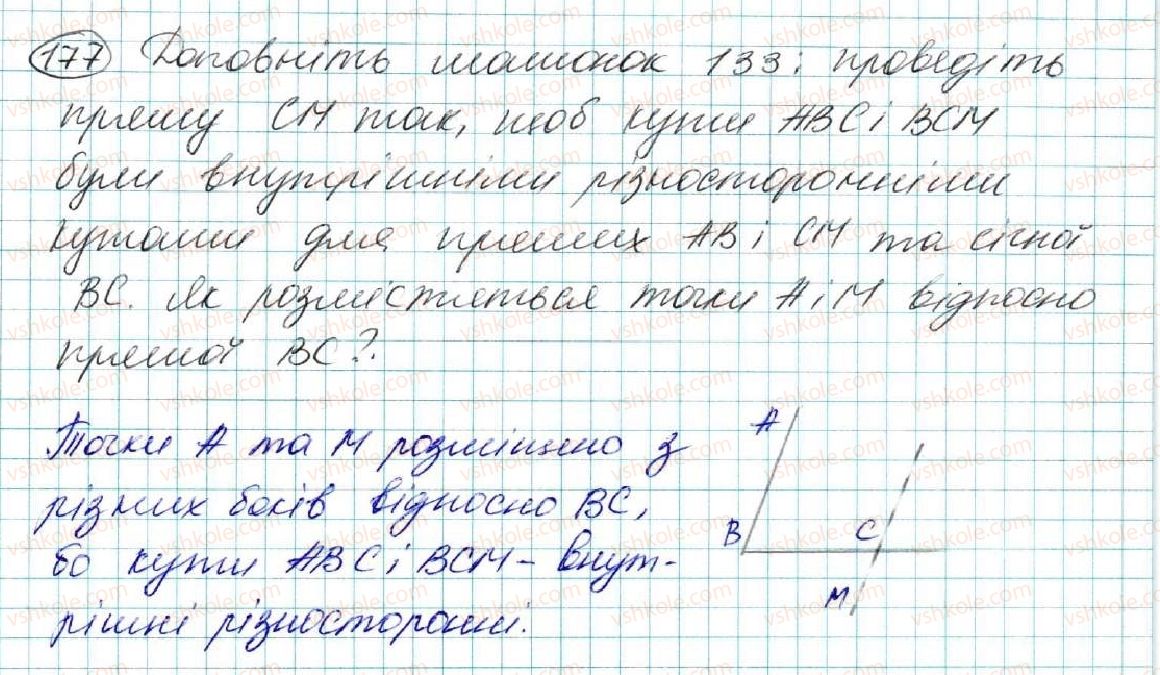 177 Доповніть малюнок 133: проведіть
пряму СМ так, щоб кути АВС і ВСМ
були внутрішніми різносторонніми
кутами для прямих АВ і СМ та січної
ВС. Як розмістяться точки А і М відносно
прямої ВС?
Точки А та М розміщено з
різних боків відносно ВС,
бо кути АВС і ВСМ - внут-
рішні різносторонні.
А
В
С
М
vshkole.com